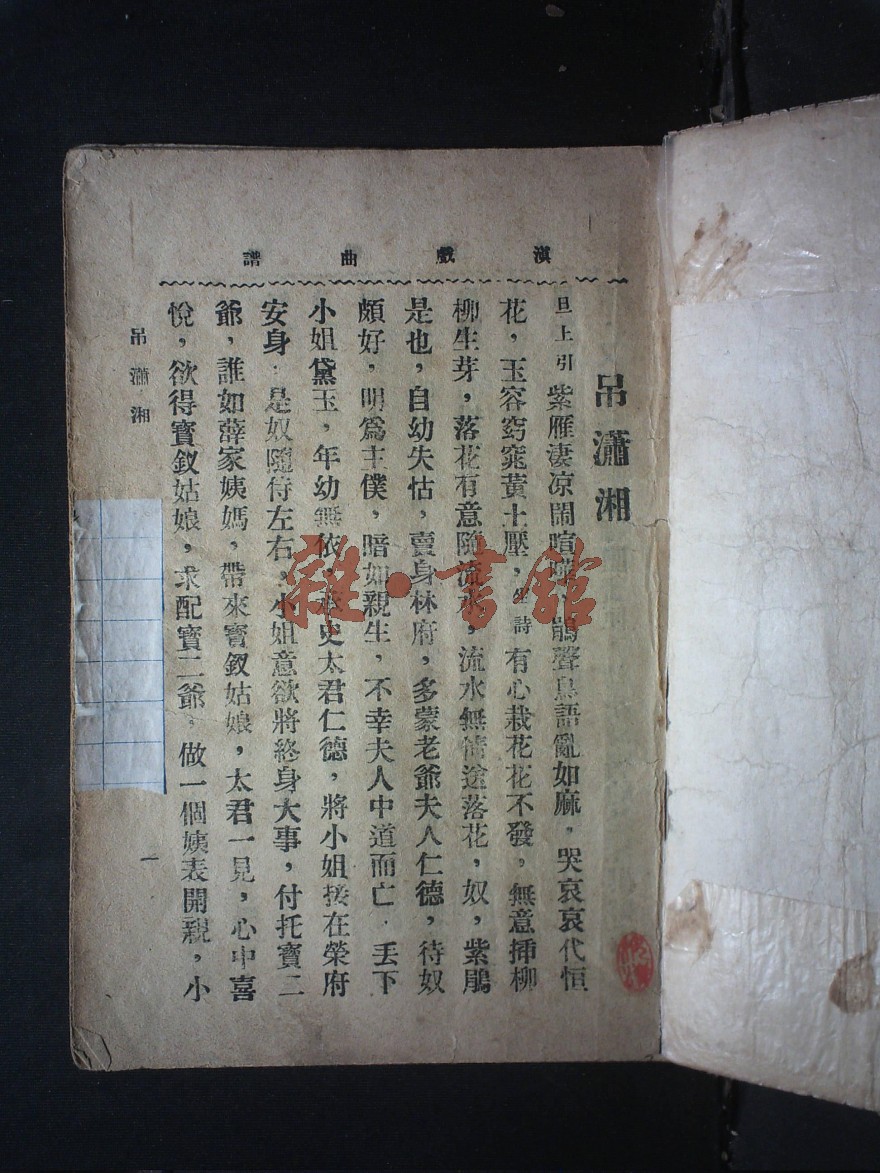 滇戲曲譜
吊瀟湘
旦上引 紫雁淒凉鬧喧 鵑聲鳥語亂如麻，哭哀哀代恒
花，玉容窈窕黃土壓，坐詩 有心栽花花不發，無意揷柳
柳生芽，落花有意隨流水，流水無情途落花，奴，紫鵑
是也，自幼失怙，賣身林府，多蒙老爺夫人仁德，待奴
頗好，明爲主僕，暗如親生，不幸夫人中道而亡．丢下
小姐黛玉，年幼無依，史太君仁德，將小姐接在榮府
安身．是奴隨侍左右，小姐意欲將終身大事，付托寶二
爺，誰如薛家姨媽，帶來寶釵姑娘，太君一見，心中喜
悅，欲得寶釵姑娘，求配寶二爺，做一個姨表開親，小
吊瀟湘
一
雜·書館